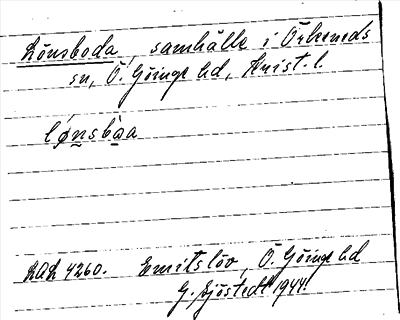 Lönsboda, samhälle i Örkeneds
sn, Ö. Göinge hd, Krist. l.
lønsbåa
LAL 4260. Emitslöv, Ö. Göinge hd
G. Sjöstedt 1944